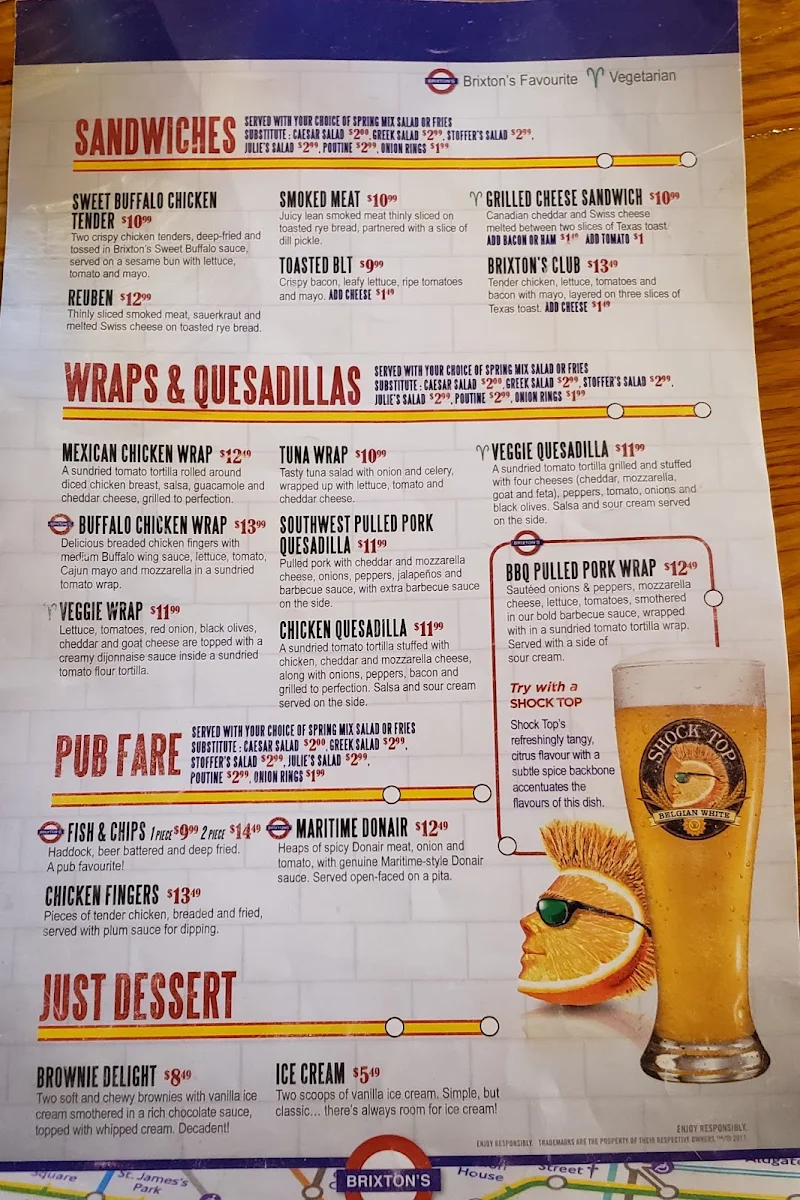 BRIXTON'S Brixton's Favourite Vegetarian
SANDWICHES
SERVED WITH YOUR CHOICE OF SPRING MIX SALAD OR FRIES
SUBSTITUTE : CAESAR SALAD $2.00, GREEK SALAD $2.99, STOFFER'S SALAD $2.99,
JULIE'S SALAD $2.99, POUTINE $2.99, ONION RINGS $1.99
SWEET BUFFALO CHICKEN
TENDER $10.99
Two crispy chicken tenders, deep-fried and
tossed in Brixton's Sweet Buffalo sauce,
served on a sesame bun with lettuce,
tomato and mayo.
REUBEN $12.99
Thinly sliced smoked meat, sauerkraut and
melted Swiss cheese on toasted rye bread.
SMOKED MEAT $10.99
Juicy lean smoked meat thinly sliced on
toasted rye bread, partnered with a slice of
dill pickle.
TOASTED BLT $9.99
Crispy bacon, leafy lettuce, ripe tomatoes
and mayo. ADD CHEESE $1.49
GRILLED CHEESE SANDWICH $10.99
Canadian cheddar and Swiss cheese
melted between two slices of Texas toast.
ADD BACON OR HAM $1.49 ADD TOMATO $1
BRIXTON'S CLUB $13.49
Tender chicken, lettuce, tomatoes and
bacon with mayo, layered on three slices of
Texas toast. ADD CHEESE $1.49
WRAPS & QUESADILLAS
SERVED WITH YOUR CHOICE OF SPRING MIX SALAD OR FRIES
SUBSTITUTE : CAESAR SALAD $2.00, GREEK SALAD $2.99, STOFFER'S SALAD $2.99,
JULIE'S SALAD $2.99, POUTINE $2.99, ONION RINGS $1.99
MEXICAN CHICKEN WRAP $12.49
A sundried tomato tortilla rolled around
diced chicken breast, salsa, guacamole and
cheddar cheese, grilled to perfection.
BRIXTON'S BUFFALO CHICKEN WRAP $13.99
Delicious breaded chicken fingers with
medium Buffalo wing sauce, lettuce, tomato,
Cajun mayo and mozzarella in a sundried
tomato wrap.
VEGGIE WRAP $11.99
Lettuce, tomatoes, red onion, black olives,
cheddar and goat cheese are topped with a
creamy dijonnaise sauce inside a sundried
tomato flour tortilla.
TUNA WRAP $10.99
Tasty tuna salad with onion and celery,
wrapped up with lettuce, tomato and
cheddar cheese.
SOUTHWEST PULLED PORK
QUESADILLA $11.99
Pulled pork with cheddar and mozzarella
cheese, onions, peppers, jalapeños and
barbecue sauce, with extra barbecue sauce
on the side.
CHICKEN QUESADILLA $11.99
A sundried tomato tortilla stuffed with
chicken, cheddar and mozzarella cheese,
along with onions, peppers, bacon and
grilled to perfection. Salsa and sour cream
served on the side.
VEGGIE QUESADILLA $11.99
A sundried tomato tortilla grilled and stuffed
with four cheeses (cheddar, mozzarella,
goat and feta), peppers, tomato, onions and
black olives. Salsa and sour cream served
on the side.
BRIXTON'S
BBQ PULLED PORK WRAP $12.49
Sautéed onions & peppers, mozzarella
cheese, lettuce, tomatoes, smothered
in our bold barbecue sauce, wrapped
with in a sundried tomato tortilla wrap.
Served with a side of
sour cream.
Try with a
SHOCK TOP
Shock Top's
refreshingly tangy,
citrus flavour with a
subtle spice backbone
accentuates the
flavours of this dish.
SHOCK TOP
BELGIAN WHITE
PUB FARE
SERVED WITH YOUR CHOICE OF SPRING MIX SALAD OR FRIES
SUBSTITUTE : CAESAR SALAD $2.00, GREEK SALAD $2.99,
STOFFER'S SALAD $2.99, JULIE'S SALAD $2.99,
POUTINE $2.99, ONION RINGS $1.99
BRIXTON'S FISH & CHIPS 1 PIECE $9.99 2 PIECE $14.49
Haddock, beer battered and deep fried.
A pub favourite!
CHICKEN FINGERS $13.49
Pieces of tender chicken, breaded and fried,
served with plum sauce for dipping.
BRIXTON'S MARITIME DONAIR $12.49
Heaps of spicy Donair meat, onion and
tomato, with genuine Maritime-style Donair
sauce. Served open-faced on a pita.
JUST DESSERT
BROWNIE DELIGHT $8.49
Two soft and chewy brownies with vanilla ice
cream smothered in a rich chocolate sauce,
topped with whipped cream. Decadent!
ICE CREAM $5.49
Two scoops of vanilla ice cream. Simple, but
classic... there's always room for ice cream!
ENJOY RESPONSIBLY.
ENJOY RESPONSIBLY. TRADEMARKS ARE THE PROPERTY OF THEIR RESPECTIVE OWNERS.
Square St. James's
Park
BRIXTON'S
House
Street
Aldgate